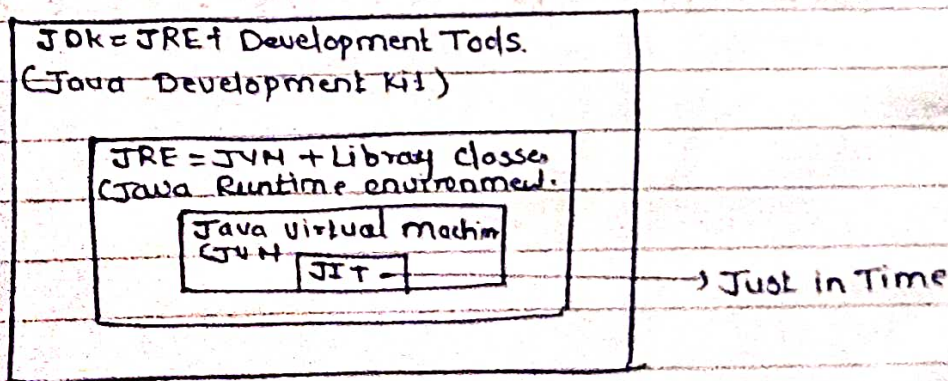 JDK = JRE + Development Tools.
(Java Development Kit)
JRE = JVM + Library Classes
(Java Runtime environment.
Java Virtual Machin
(JVM
JIT
→ Just in Time